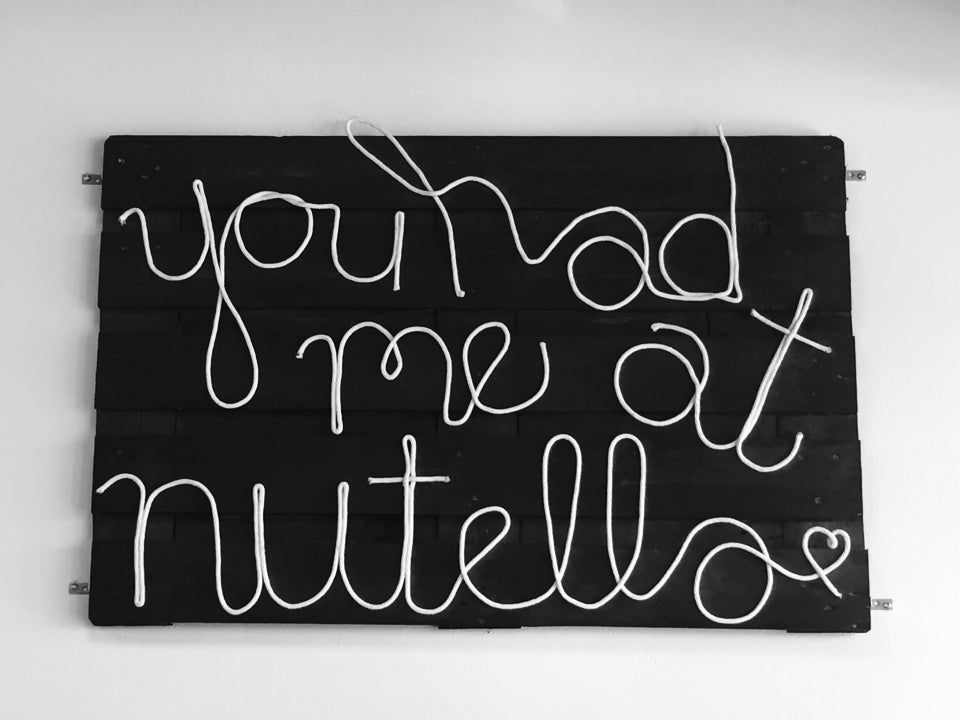 you had
me at
nutella